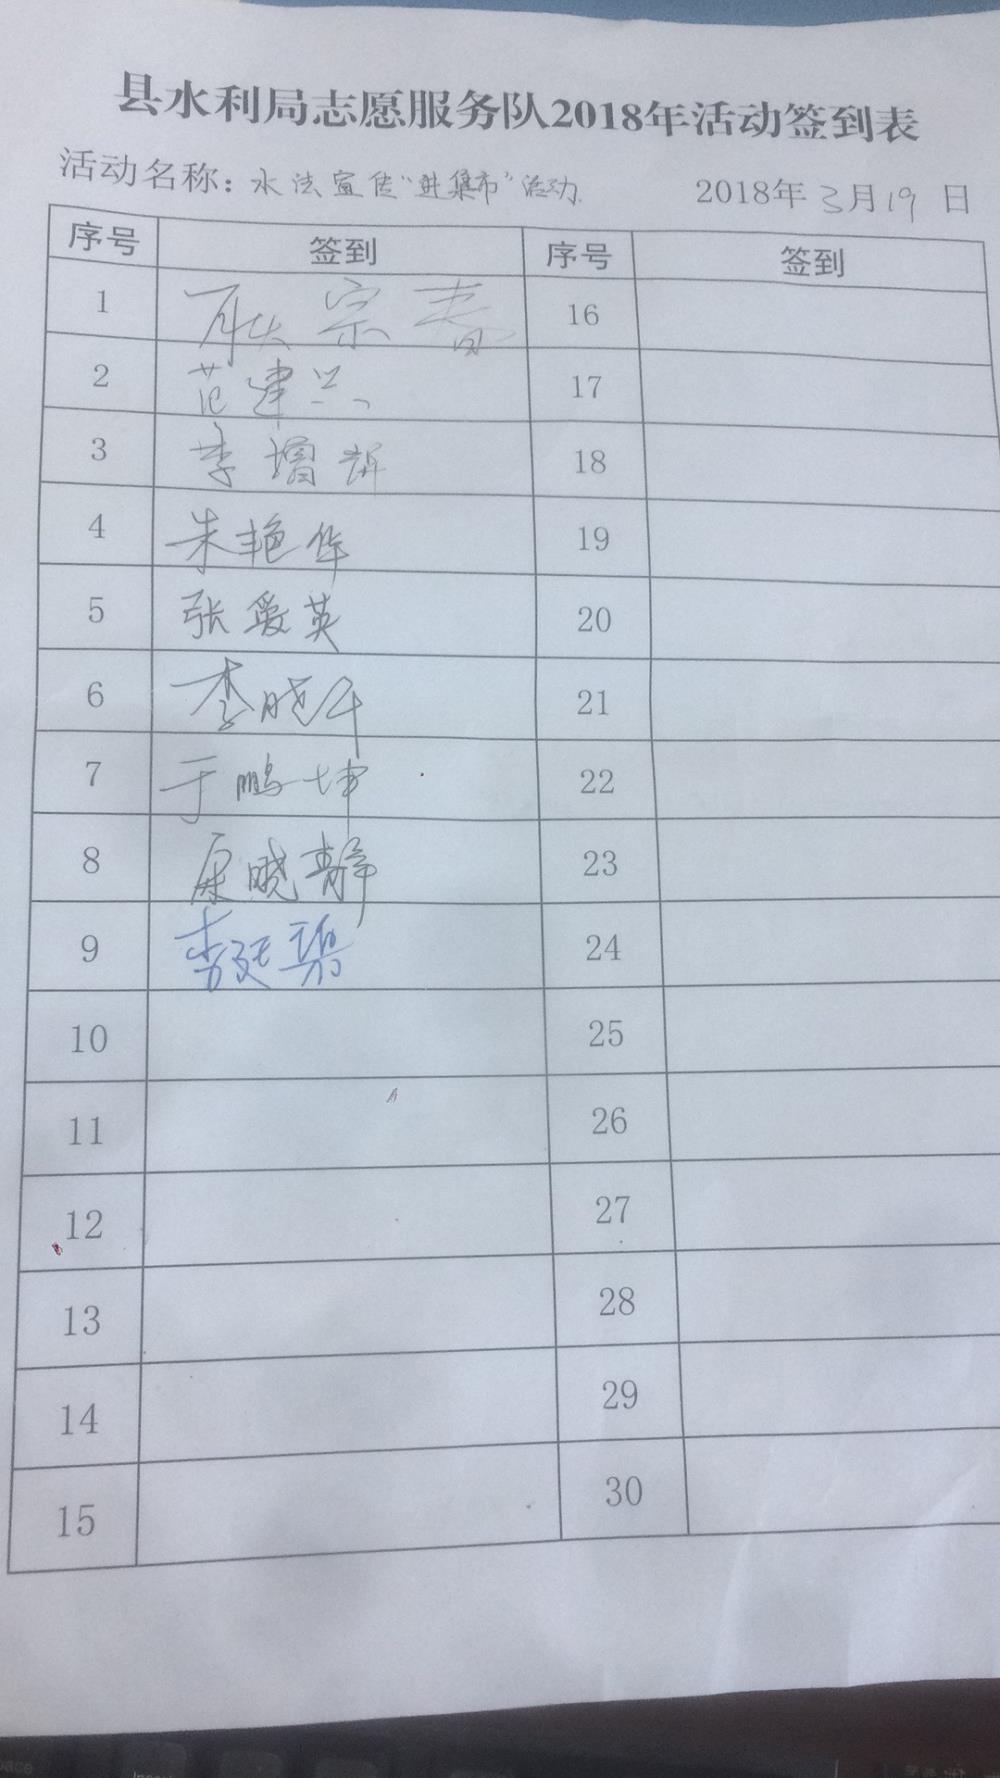 县水利局志愿服务队2018年活动签到表
活动名称：水法宣传“进集市”活动. 2018年3月19日
序号 签到 序号 签到
1 耿宗春 16
2 范建兴 17
3 李增辉 18
4 朱艳华 19
5 张爱英 20
6 李晓华 21
7 于鹏坤 22
8 康晓静 23
9 李廷 24
10 25
11 26
12 27
13 28
14 29
15 30